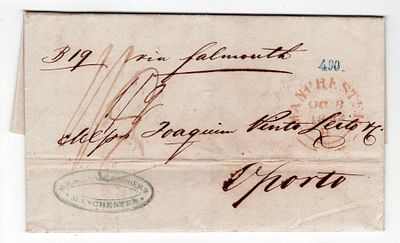 B19 via Falmouth
400
MANCHESTER
OC 8
Messrs Joaquim Pinto Leite &
Oporto
MANCHESTER